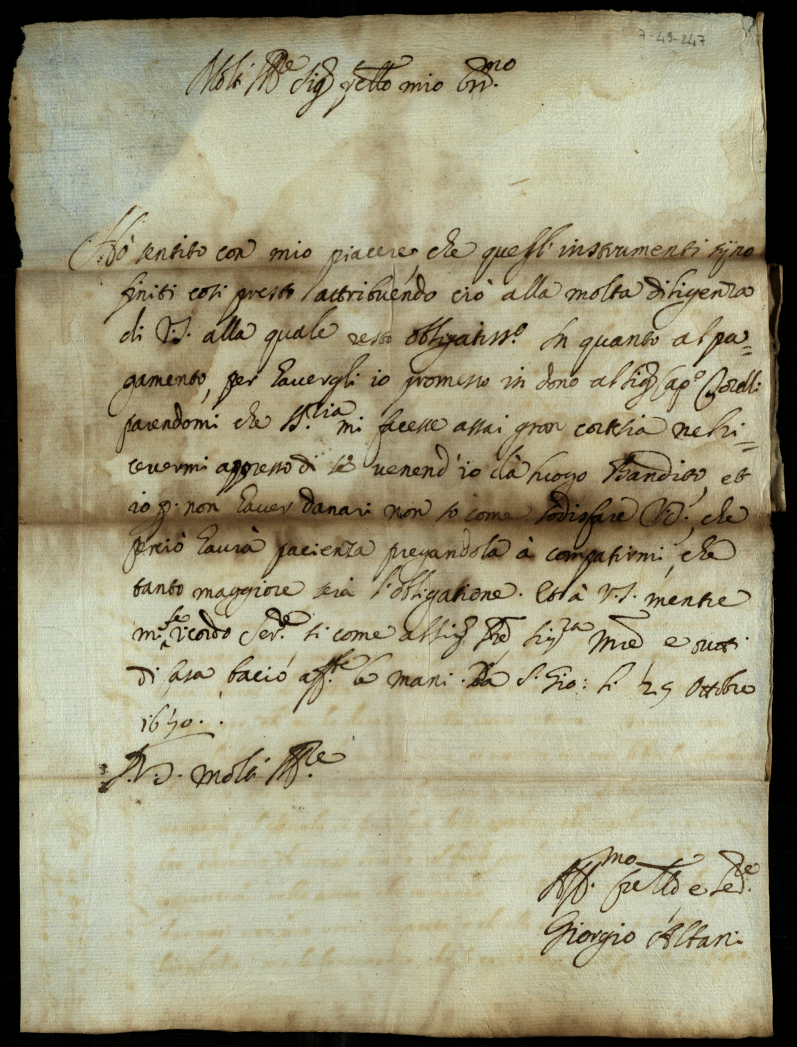 7-49-247
Molt Ill.re Sig.r fratello mio Oss.mo
Hò sentito con mio piacere, che questi instrumenti sijno
finiti così presto attribuendo ciò alla molta diligenza
di V.S. alla quale resto obligatiss.o In quanto al pa=
gamento, per havergli io promesso in dono al Sig.r Cap.o
parendomi che mi facesse assai gran cortesia nel ri=
cevermi appresso di se venend'io da luogo Bandito, et
io p. non haver danari non so come sodisfare V.S., che
perciò haurà pacienza pregandola à compatirmi, che
tanto maggiore serà l'obligatione. Et à V.S. mentre
mi le ricordo Ser.re si come al Sig.r Pre Sig.ra Mre e tutti
di Casa bacio aff.te le mani. Da S. Gio: li 25 Ottobre
1650.
D. V.S. molt Ill.re
Aff.mo fratello e Ser.re
Giorgio Altani